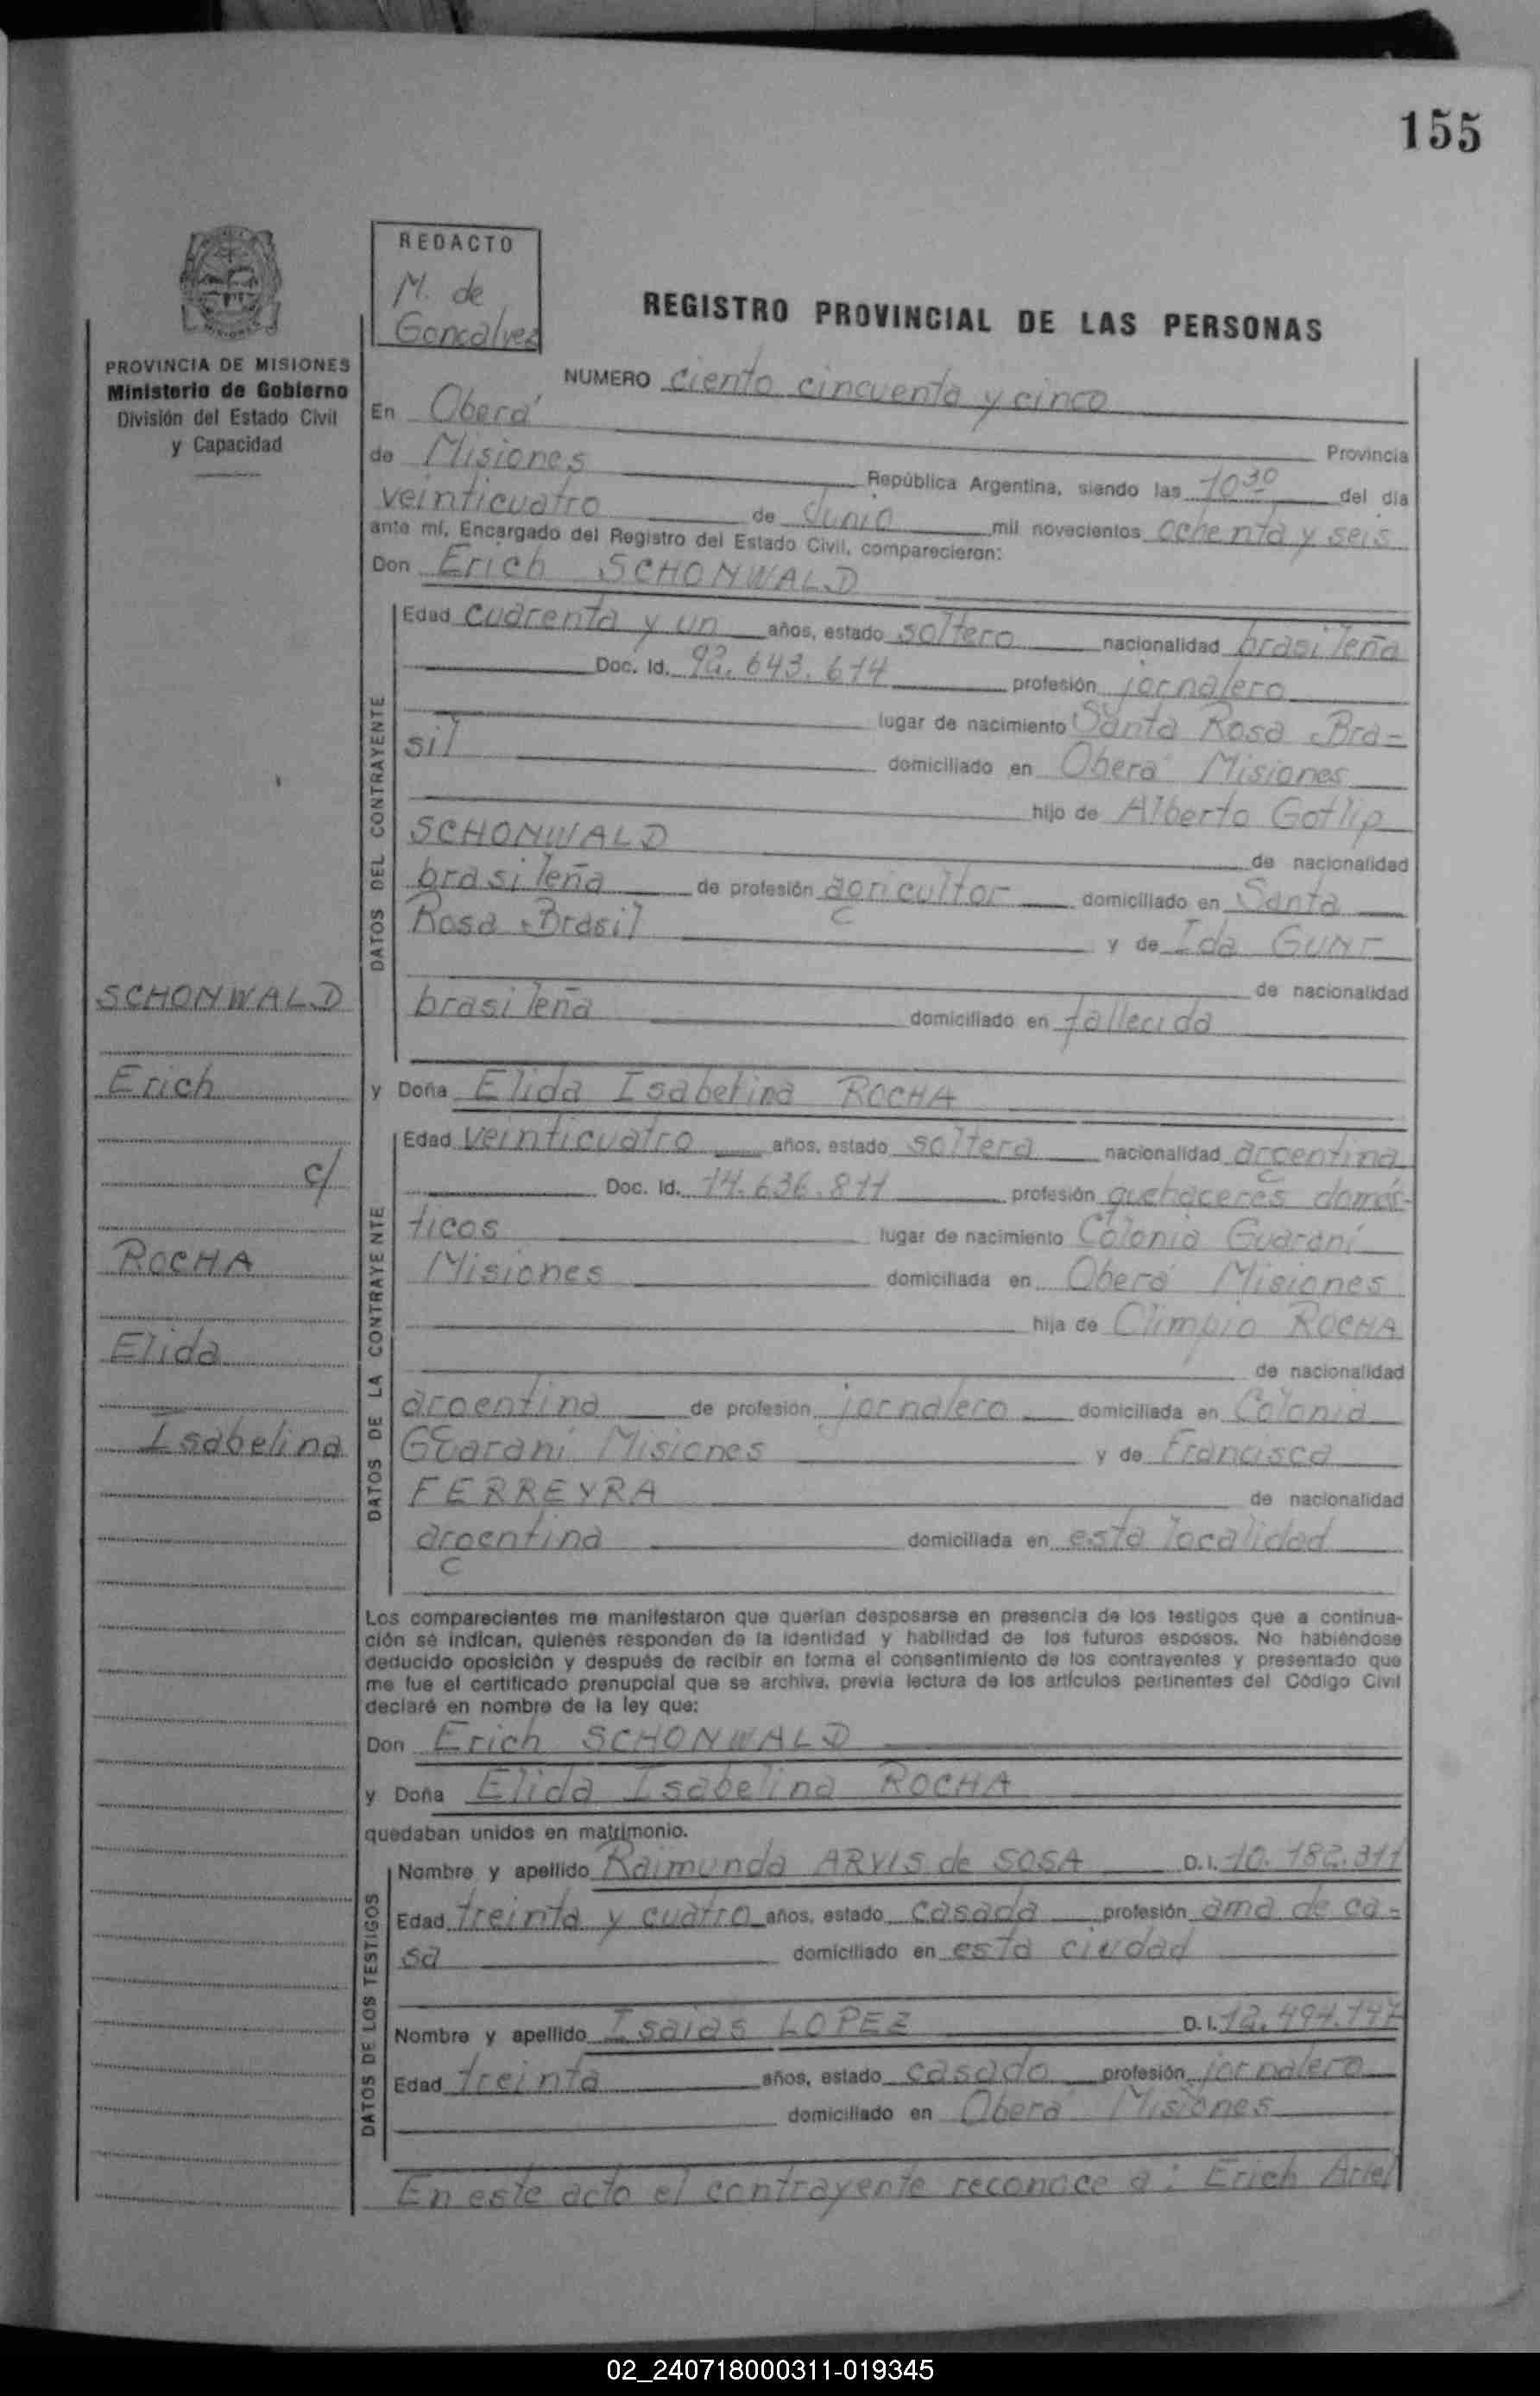 155
REDACTO
M. de
Goncalvez
REGISTRO PROVINCIAL DE LAS PERSONAS
PROVINCIA DE MISIONES
Ministerio de Gobierno
División del Estado Civil
y Capacidad
NUMERO ciento cincuenta y cinco
En Oberá Provincia
de Misiones República Argentina, siendo las 10 30 del día
veinticuatro de Junio mil novecientos ochenta y seis
ante mí, Encargado del Registro del Estado Civil, comparecieron:
Don Erich SCHONWALD
DATOS DEL CONTRAYENTE
Edad cuarenta y un años, estado soltero nacionalidad brasileña
Doc. Id. 92.643.614 profesión jornalero
lugar de nacimiento Santa Rosa Bra-
sil domiciliado en Oberá Misiones
hijo de Alberto Gotlip
SCHONWALD de nacionalidad
brasileña de profesión agricultor domiciliado en Santa
Rosa Brasil y de Ida GUNT
de nacionalidad
brasileña domiciliado en fallecida
SCHONWALD
Erich
c/
ROCHA
Elida
Isabelina
y Doña Elida Isabelina ROCHA
DATOS DE LA CONTRAYENTE
Edad veinticuatro años, estado soltera nacionalidad argentina
Doc. Id. 14.636.811 profesión quehaceres domés-
ticos lugar de nacimiento Colonia Guaraní
Misiones domiciliada en Oberá Misiones
hija de Olimpio ROCHA
de nacionalidad
argentina de profesión jornalero domiciliada en Colonia
Guaraní Misiones y de Francisca
FERREYRA de nacionalidad
argentina domiciliada en esta localidad
Los comparecientes me manifestaron que querían desposarse en presencia de los testigos que a continua-
ción se indican, quienes responden de la identidad y habilidad de los futuros esposos. No habiéndose
deducido oposición y después de recibir en forma el consentimiento de los contrayentes y presentado que
me fue el certificado prenupcial que se archiva, previa lectura de los artículos pertinentes del Código Civil
declaré en nombre de la ley que:
Don Erich SCHONWALD
y Doña Elida Isabelina ROCHA
quedaban unidos en matrimonio.
DATOS DE LOS TESTIGOS
Nombre y apellido Raimunda ARVIS de SOSA D.I. 10.182.311
Edad treinta y cuatro años, estado casada profesión ama de ca-
sa domiciliado en esta ciudad
Nombre y apellido Isaias LOPEZ D.I. 12.494.147
Edad treinta años, estado casado profesión jornalero
domiciliado en Oberá Misiones
En este acto el contrayente reconoce a: Erich Ariel
02_240718000311-019345